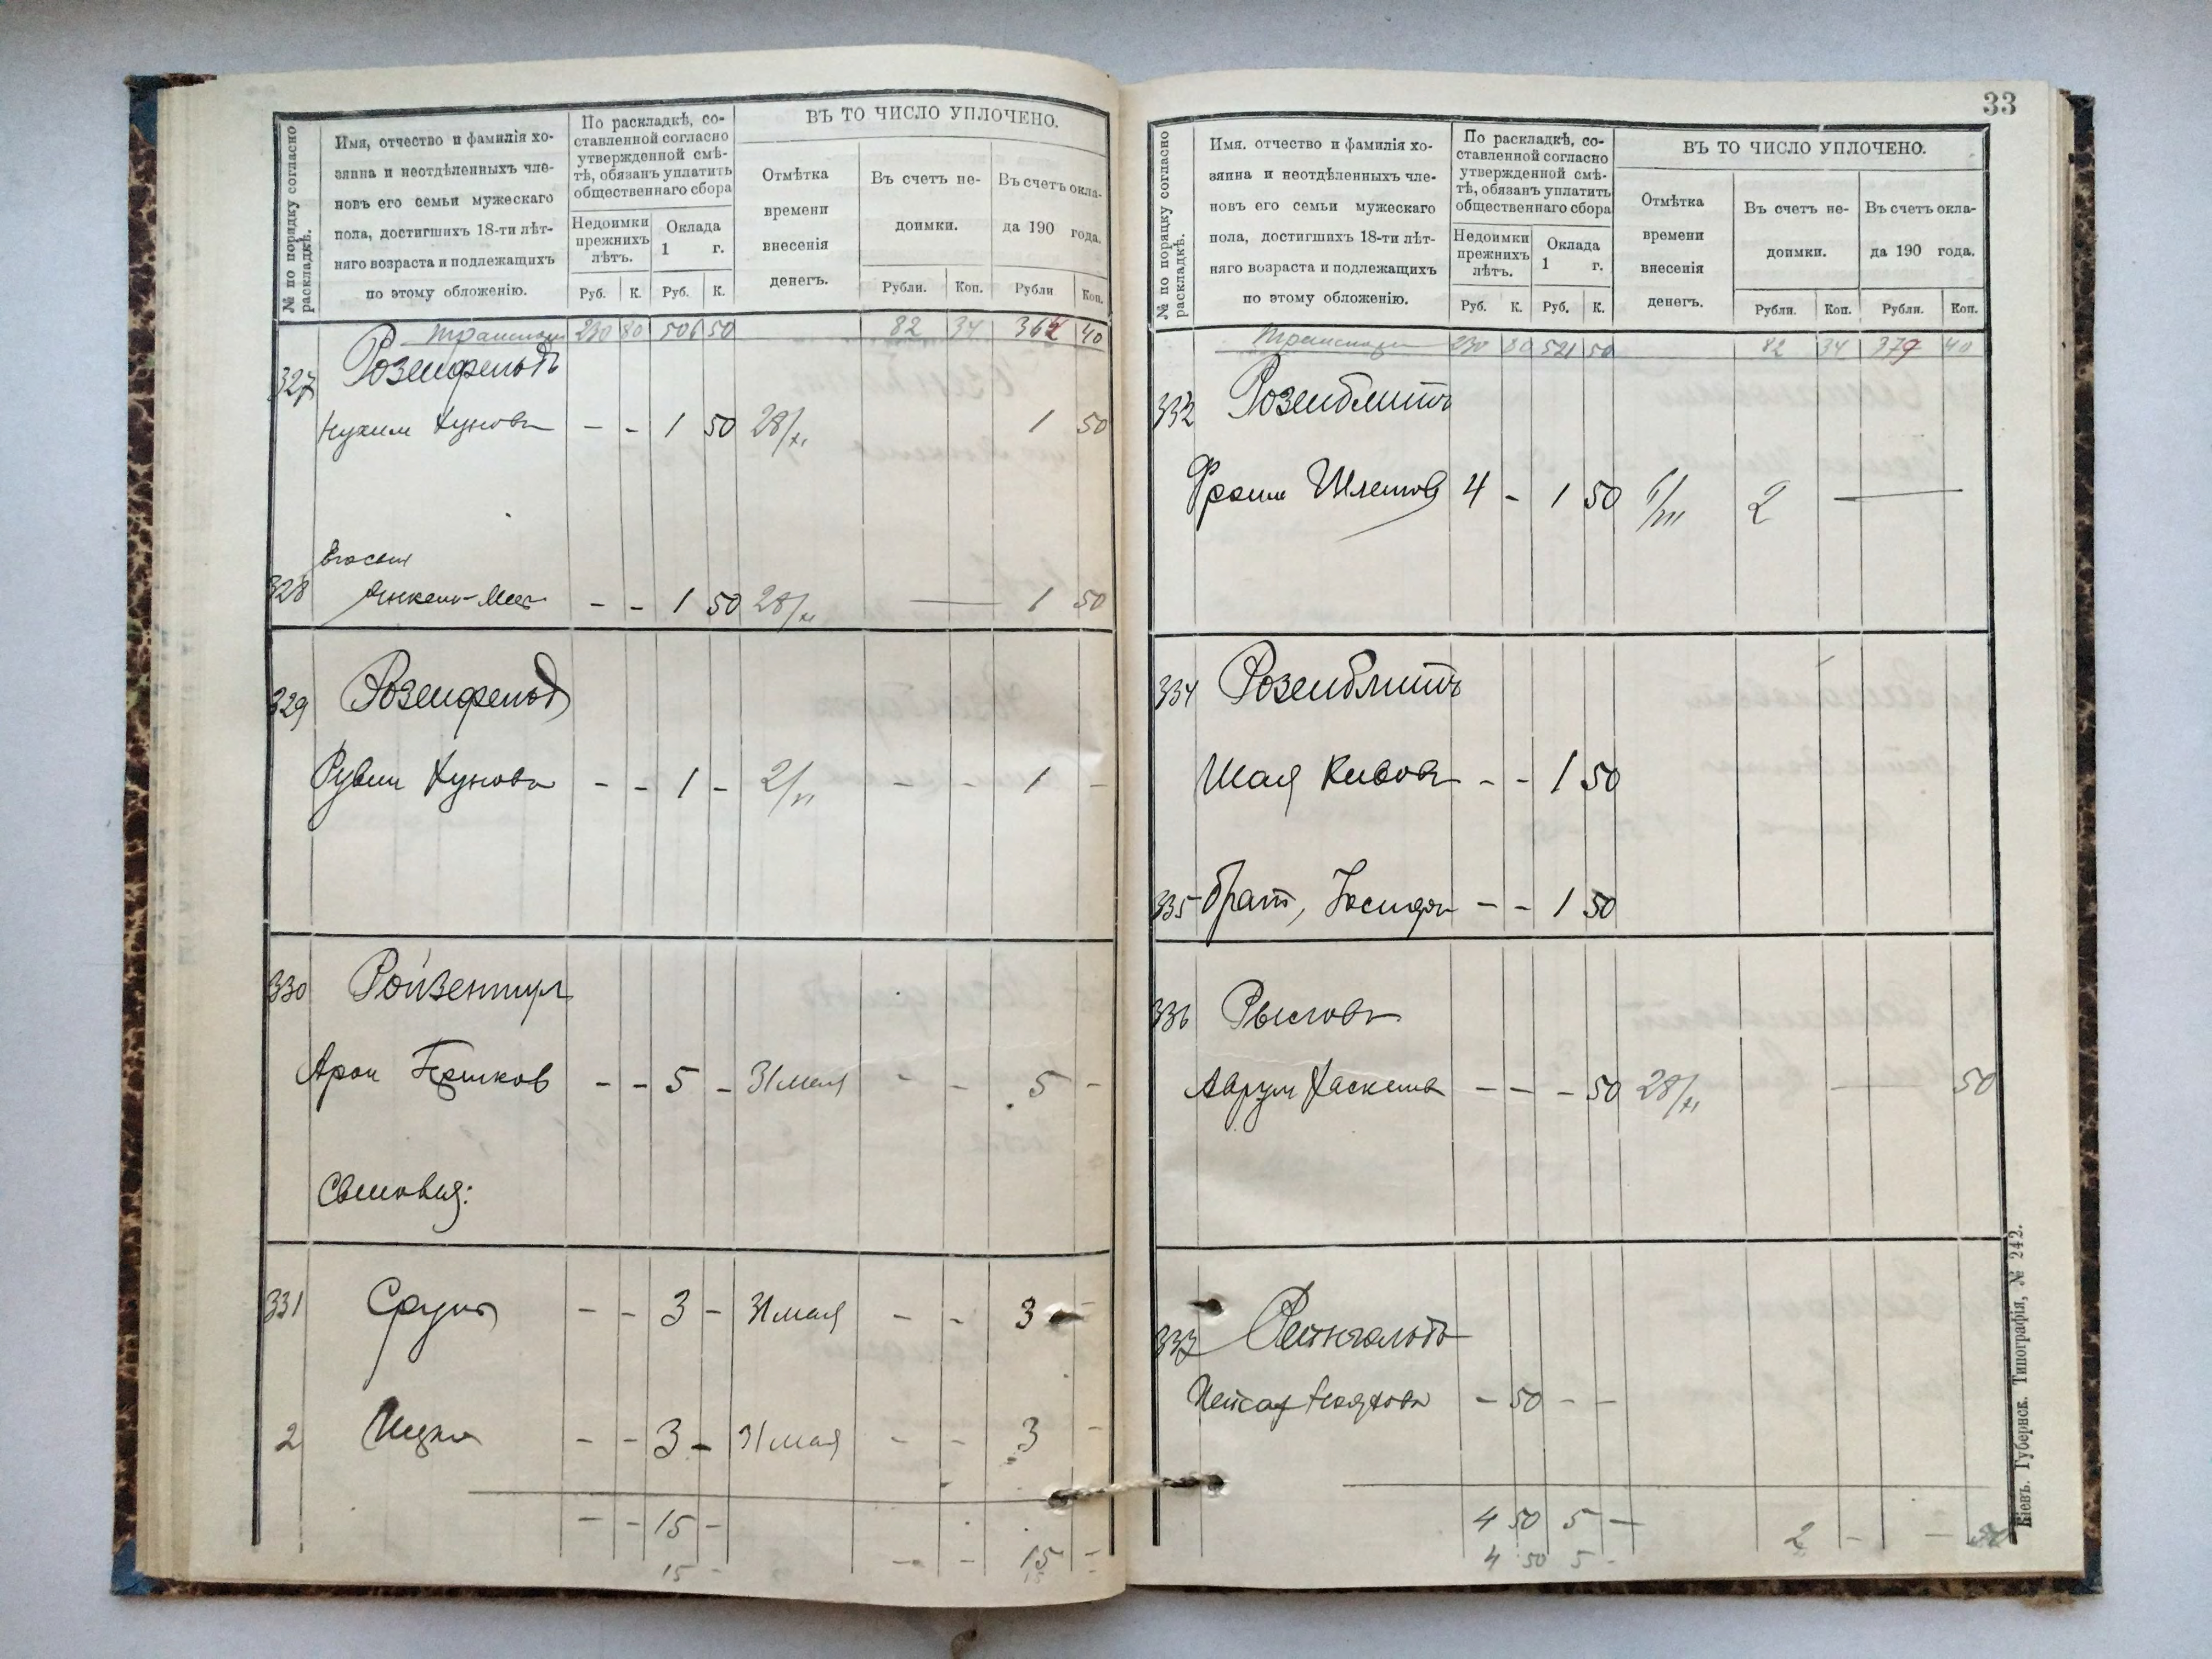 № по порядку согласно раскладкѣ.
Имя, отчество и фамилія хо-
зяина и неотдѣленныхъ чле-
новъ его семьи мужескаго
пола, достигшихъ 18-ти лѣт-
няго возраста и подлежащихъ
по этому обложенію.
По раскладкѣ, со-
ставленной согласно
утвержденной смѣ-
тѣ, обязанъ уплатить
общественнаго сбора
Недоимки
прежнихъ
лѣтъ.
Оклада
1 г.
Руб. К. Руб. К.
ВЪ ТО ЧИСЛО УПЛОЧЕНО.
Отмѣтка
времени
внесенія
денегъ.
Въ счетъ не-
доимки.
Рубли. Коп.
Въ счетъ окла-
да 190 года.
Рубли Коп.
230 80 506 50 82 34 362 40
327 Розенфельдъ
Нухим Хуновъ - - 1 50 28/XI 1 50
328 - - 1 50 28/XI — 1 50
329 Розенфельд
Рувин Хуновъ - - 1 - 2/VI - - 1 -
330 Ройзентул
Арон - - 5 - 31 мая - - 5 -
Сыновья:
331 Сруль - - 3 - 31 мая - - 3 -
2 Ицко - - 3 - 31 мая - - 3 -
- - 15 -
- - 15 -
15 - 15
33
№ по порядку согласно раскладкѣ.
Имя, отчество и фамилія хо-
зяина и неотдѣленныхъ чле-
новъ его семьи мужескаго
пола, достигшихъ 18-ти лѣт-
няго возраста и подлежащихъ
по этому обложенію.
По раскладкѣ, со-
ставленной согласно
утвержденной смѣ-
тѣ, обязанъ уплатить
общественнаго сбора
Недоимки
прежнихъ
лѣтъ.
Оклада
1 г.
Руб. К. Руб. К.
ВЪ ТО ЧИСЛО УПЛОЧЕНО.
Отмѣтка
времени
внесенія
денегъ.
Въ счетъ не-
доимки.
Рубли. Коп.
Въ счетъ окла-
да 190 года.
Рубли. Коп.
230 80 521 50 82 34 379 40
Розенблитъ
Фроим 4 - 1 50 2 —
334 Розенблитъ
Шая Кивовъ - - 1 50
335 брат, - - 1 50
336
Аврум Хаскелев - - - 50 28/XI — 50
Пейсах - 50 - -
4 50 5 — 2 - - 50
4 50 5 -
Кіевъ. Губернск. Типографія, № 242.